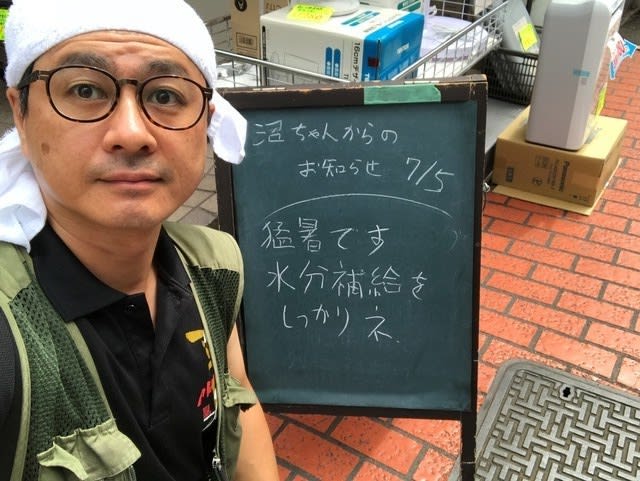 沼ちゃんからの
お知らせ 7/5
猛暑です
水分補給を
しっかりネ.
16cm
Panasonic